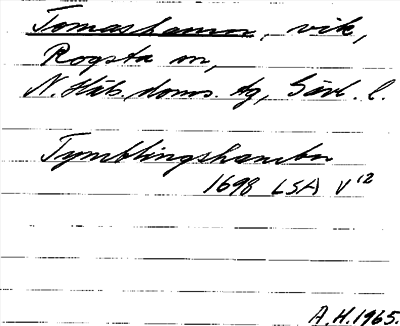 Tomashamn, vik,
Rogsta sn,
N. Häls. doms. tg, Gävl. l.
Tymblingshambn
1698 LSA V 12
A.H. 1965.